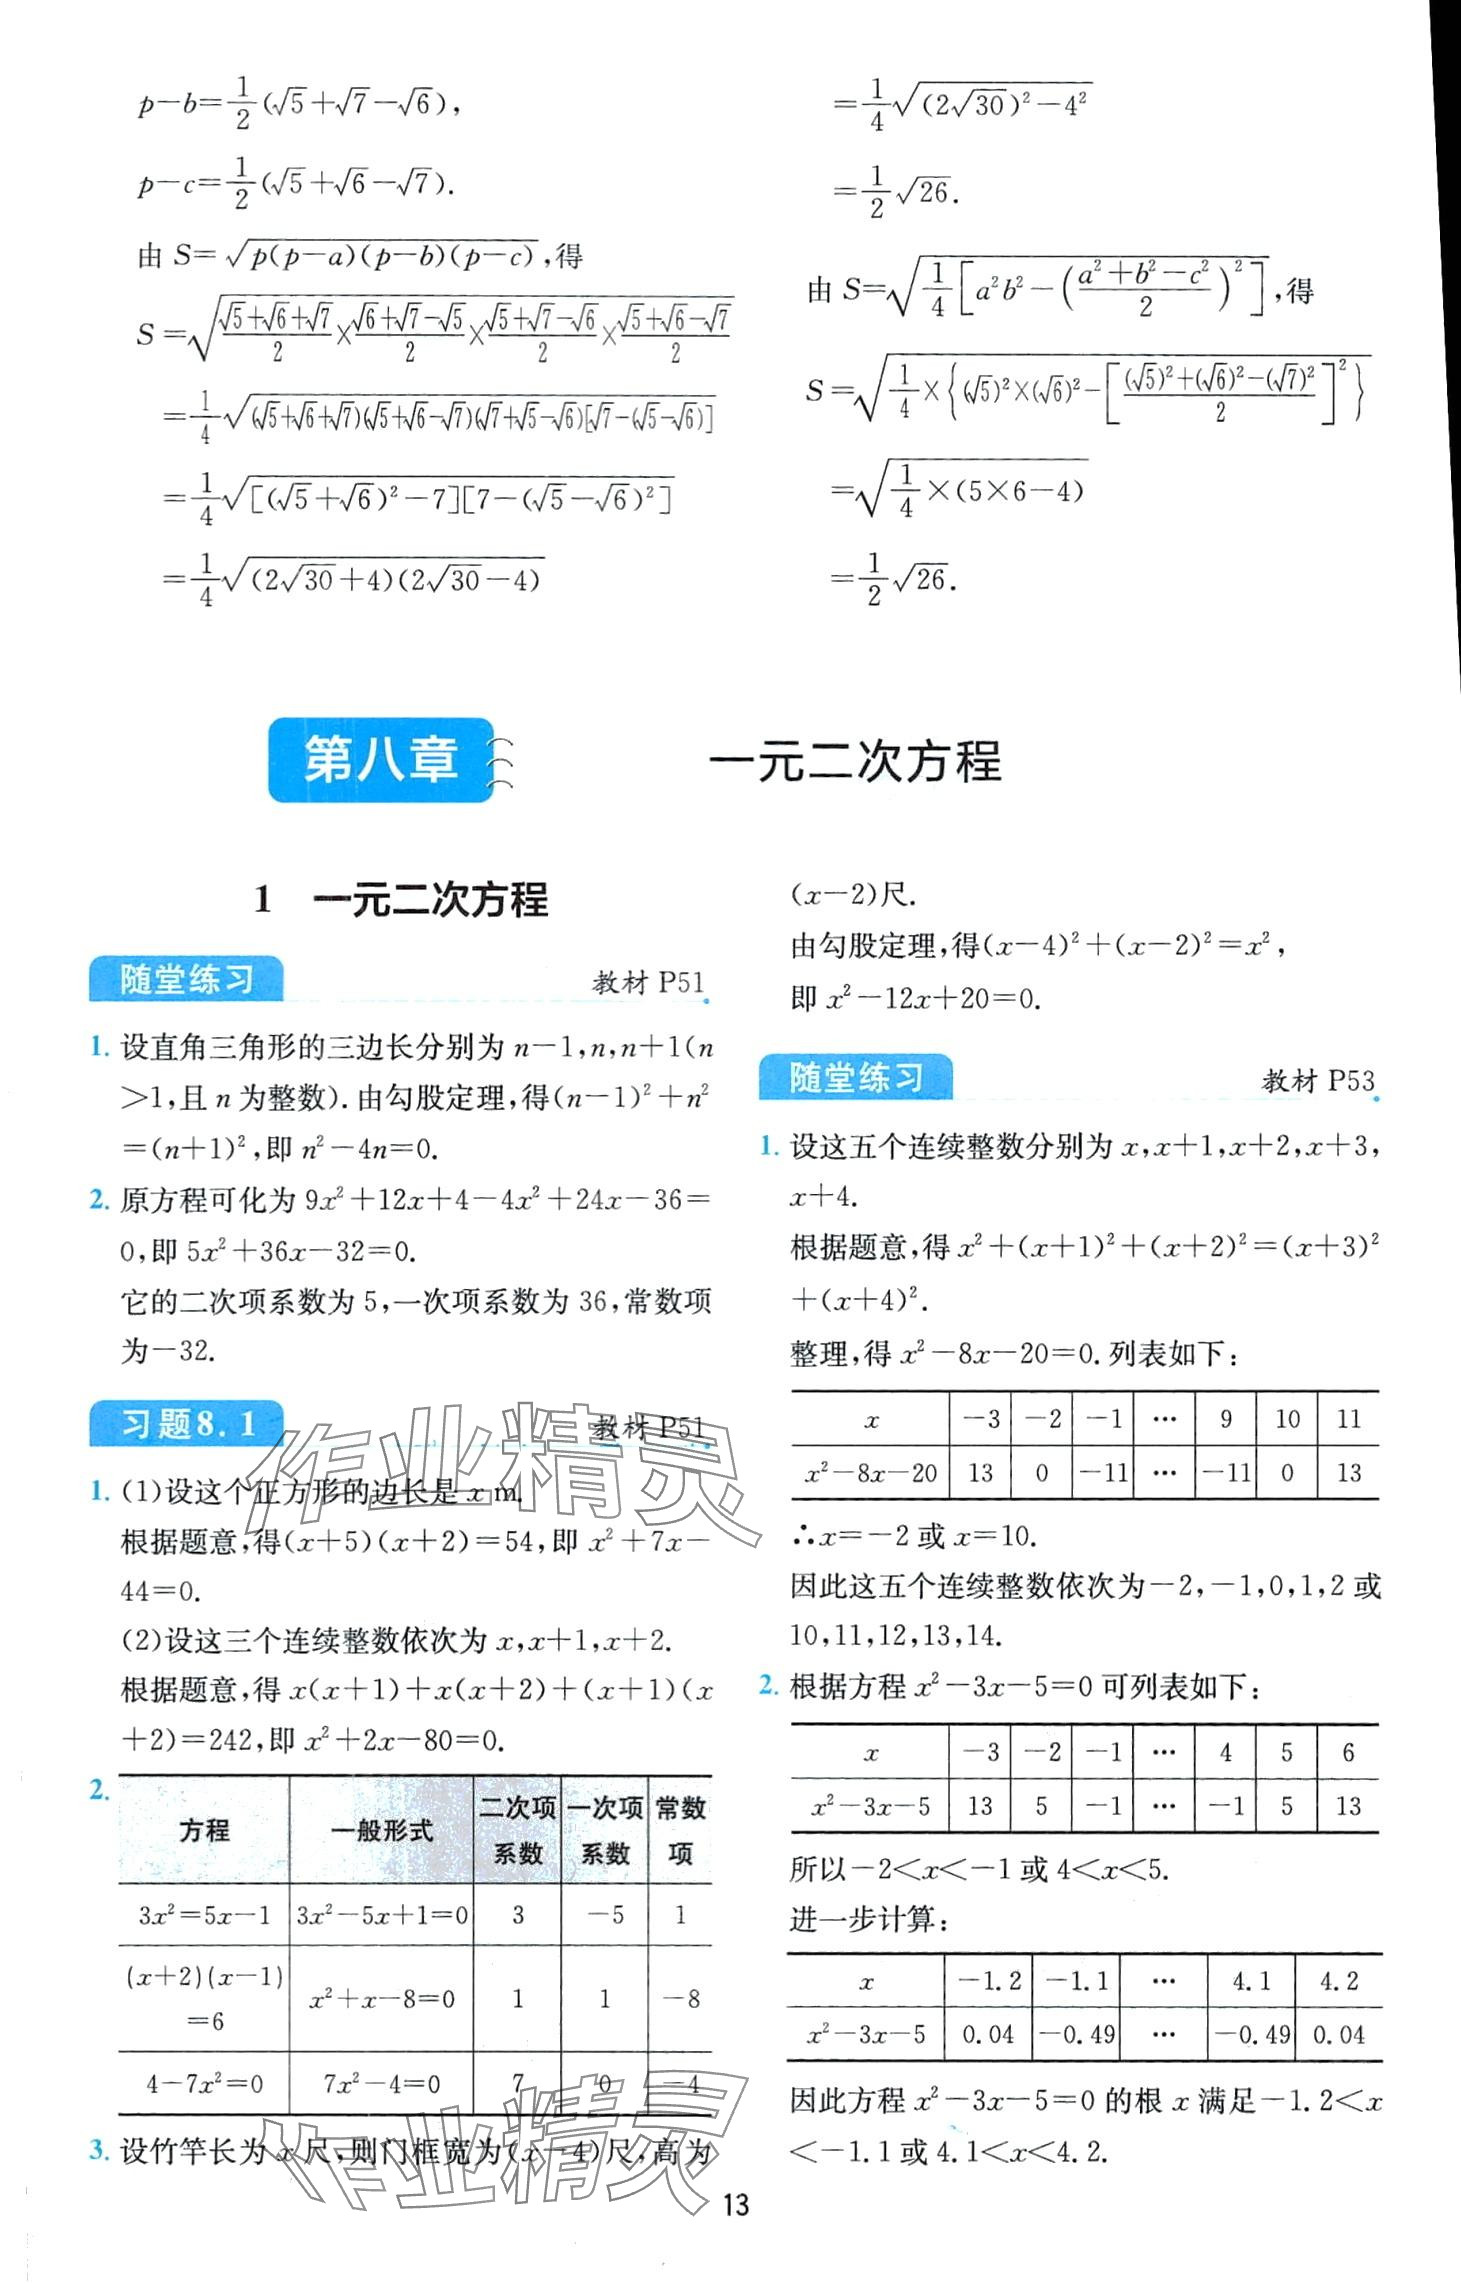 p－b＝1/2(√5＋√7－√6),
p－c＝1/2(√5＋√6－√7).
由 S＝√(p(p－a)(p－b)(p－c)),得
S＝√((√5＋√6＋√7)/2×(√6＋√7－√5)/2×(√5＋√7－√6)/2×(√5＋√6－√7)/2)
＝1/4√((√5＋√6＋√7)(√5＋√6－√7)(√7＋√5－√6)[√7－(√5－√6)])
＝1/4√([(√5＋√6)²－7][7－(√5－√6)²])
＝1/4√((2√30＋4)(2√30－4))
＝1/4√((2√30)²－4²)
＝1/2√26.
由 S＝√(1/4[a²b²－((a²＋b²－c²)/2)²]),得
S＝√(1/4×{(√5)²×(√6)²－[((√5)²＋(√6)²－(√7)²)/2]²})
＝√(1/4×(5×6－4))
＝1/2√26.
第八章 一元二次方程
1 一元二次方程
随堂练习 教材 P51
1. 设直角三角形的三边长分别为 n－1,n,n＋1(n
＞1,且 n 为整数). 由勾股定理,得(n－1)²＋n²
＝(n＋1)²,即 n²－4n＝0.
2. 原方程可化为 9x²＋12x＋4－4x²＋24x－36＝
0,即 5x²＋36x－32＝0.
它的二次项系数为 5,一次项系数为 36,常数项
为－32.
习题8.1 教材 P51
1. (1)设这个正方形的边长是 x m.
根据题意,得(x＋5)(x＋2)＝54,即 x²＋7x－
44＝0.
(2)设这三个连续整数依次为 x,x＋1,x＋2.
根据题意,得 x(x＋1)＋x(x＋2)＋(x＋1)(x
＋2)＝242,即 x²＋2x－80＝0.
2.
方程 一般形式 二次项系数 一次项系数 常数项
3x²＝5x－1 3x²－5x＋1＝0 3 －5 1
(x＋2)(x－1)＝6 x²＋x－8＝0 1 1 －8
4－7x²＝0 7x²－4＝0 7 0 －4
3. 设竹竿长为 x 尺,则门框宽为(x－4)尺,高为
(x－2)尺.
由勾股定理,得(x－4)²＋(x－2)²＝x²,
即 x²－12x＋20＝0.
随堂练习 教材 P53
1. 设这五个连续整数分别为 x,x＋1,x＋2,x＋3,
x＋4.
根据题意,得 x²＋(x＋1)²＋(x＋2)²＝(x＋3)²
＋(x＋4)².
整理,得 x²－8x－20＝0. 列表如下:
x －3 －2 －1 … 9 10 11
x²－8x－20 13 0 －11 … －11 0 13
∴x＝－2 或 x＝10.
因此这五个连续整数依次为－2,－1,0,1,2 或
10,11,12,13,14.
2. 根据方程 x²－3x－5＝0 可列表如下:
x －3 －2 －1 … 4 5 6
x²－3x－5 13 5 －1 … －1 5 13
所以－2＜x＜－1 或 4＜x＜5.
进一步计算:
x －1.2 －1.1 … 4.1 4.2
x²－3x－5 0.04 －0.49 … －0.49 0.04
因此方程 x²－3x－5＝0 的根 x 满足－1.2＜x
＜－1.1 或 4.1＜x＜4.2.
作业精灵
作业精灵
13